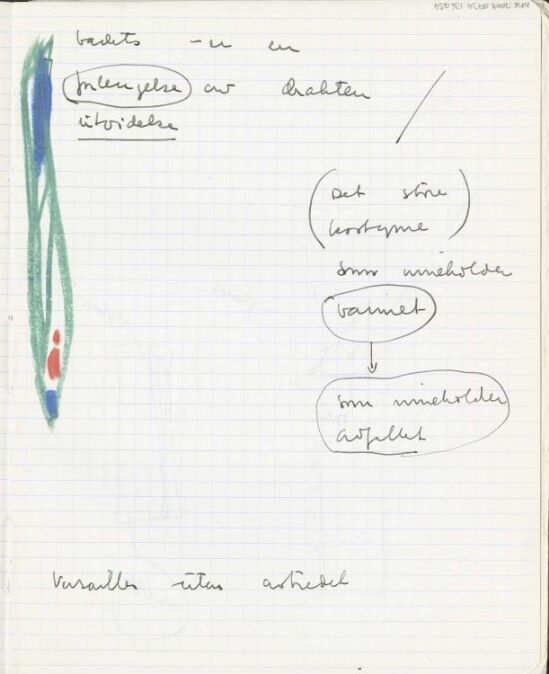 badets - u en
forlengelse av drakten
utvidelse
(Det store
kostyme)
som inneholder
vannet
som inneholder
avfallet
Versailles utan